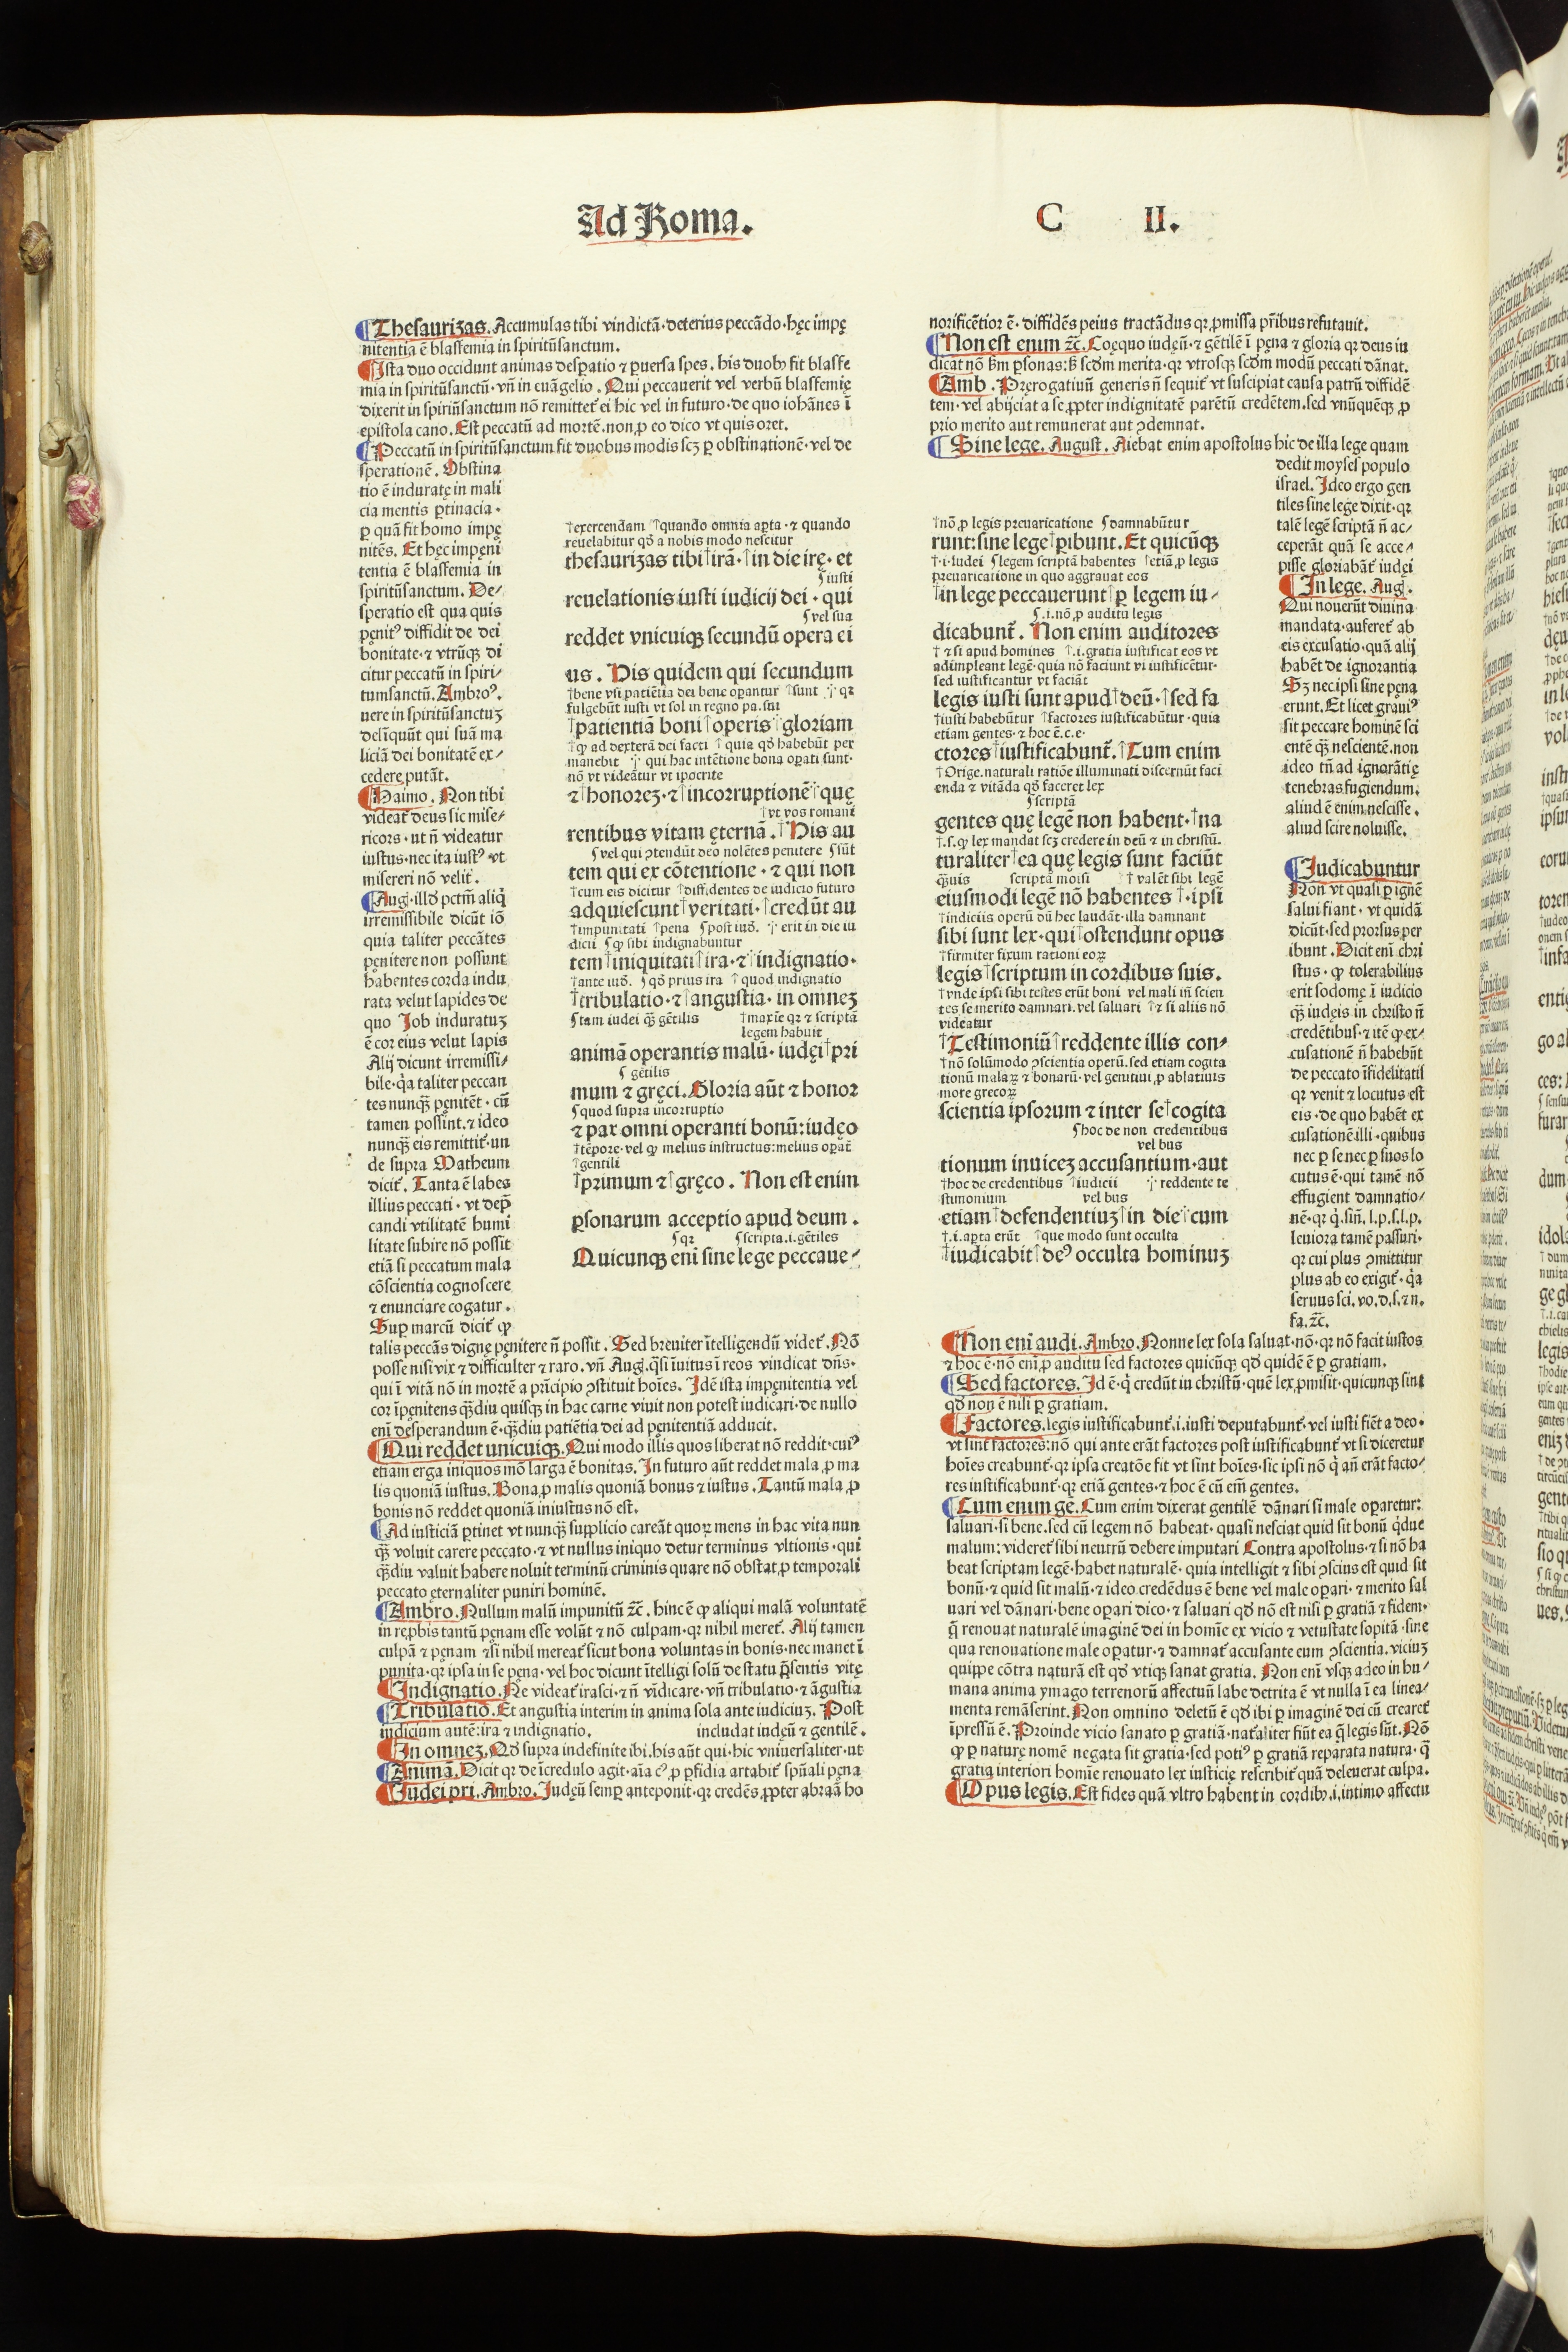 Ad Roma.
C II.
Thesaurizas. Accumulas tibi vindictā· deterius peccādo· hęc impę
nitentia ē blasfemia in spiritūsanctum.
Ista duo occidunt animas desꝑatio ⁊ ꝑuersa spes. his duob⁹ fit blasfe
mia in spiritūsanctū. vn̄ in euāgelio. Qui peccauerit vel verbū blasfemię
dixerit in spiritūsanctum nō remittet᷑ ei hic vel in futuro· de quo iohānes ī
epistola cano. Est peccatū ad mortē. non ꝓ eo dico vt quis oret.
Peccatū in spiritūsanctum fit duobus modis scꝫ ꝑ obstinationē· vel de
sperationē. Obstina
tio ē induratę in mali
cia mentis ꝑtinacia·
ꝑ quā fit homo impę
nitēs. Et hęc impęni
tentia ē blasfemia in
spiritūsanctum. De/
speratio est qua quis
pęnit⁹ diffidit de dei
bonitate· ⁊ vtrūqꝫ di
citur peccatū in spiri/
tumsanctū. Ambro⁹.
uere in spiritūsanctuꝫ
delīquūt qui suā ma
liciā dei bonitatē ex/
cedere putāt.
Haimo. Non tibi
videat᷑ deus sic mise/
ricors· ut n̄ videatur
iustus· nec ita iust⁹ vt
misereri nō velit᷑.
Aug. illd̄ pctm̄ aliq̇
irremissibile dicūt iō
quia taliter peccātes
pęnitere non possunt
habentes corda indu
rata velut lapides de
quo Job induratuꝫ
ē cor eius velut lapis
Alij dicunt irremissi/
bile· q̇a taliter peccan
tes nunqꝫ̄ pęnitēt· cū
tamen possint. ⁊ ideo
nunqꝫ̄ eis remittit᷑· un
de supra Matheum
dicit᷑. Tanta ē labes
illius peccati· vt dep̄
candi vtilitatē humi
litate subire nō possit
etiā si peccatum mala
cōscientia cognoscere
⁊ enunciare cogatur.
Suꝑ marcū dicit᷑ ꝙ
talis peccās dignę pęnitere n̄ possit. Sed breuiter ītelligendū videt᷑. Nō
posse nisi vix ⁊ difficulter ⁊ raro. vn̄ Aug. q̇si īuitus ī reos vindicat dn̄s·
qui ī vitā nō in mortē a prīcipio ꝯstituit hoīes. Idē ista impęnitentia vel
cor īpęnitens qꝫ̄diu quisqꝫ in hac carne viuit non potest iudicari· de nullo
enī desperandum ē· qꝫ̄diu patiētia dei ad pęnitentiā adducit.
Qui reddet unicuiqꝫ. Qui modo illis quos liberat nō reddit· cui⁹
etiam erga iniquos mō larga ē bonitas. In futuro aūt reddet mala ꝓ ma
lis quoniā iustus. Bona ꝓ malis quoniā bonus ⁊ iustus. Tantū mala ꝓ
bonis nō reddet quoniā iniustus nō est.
Ad iusticiā ꝑtinet vt nunqꝫ̄ supplicio careāt quoꝝ mens in hac vita nun
qꝫ̄ voluit carere peccato· ⁊ vt nullus iniquo detur terminus vltionis· qui
qꝫ̄diu valuit habere noluit terminū criminis quare nō obstat ꝓ temporali
peccato ęternaliter puniri hominē.
Ambro. Nullum malū impunitū ⁊c̄. hinc ē ꝙ aliqui malā voluntatē
in reꝓbis tantū pęnam esse volūt ⁊ nō culpam· qꝛ nihil meret᷑. Alij tamen
culpā ⁊ pęnam ⁊ si nihil mereat᷑ sicut bona voluntas in bonis· nec manet ī
punita· qꝛ ipsa in se pęna· vel hoc dicunt ītelligi solū de statu p̄sentis vitę
Indignatio. Ne videat᷑ irasci· ⁊ n̄ vīdicare· vn̄ tribulatio· ⁊ āgustia
Tribulatio. Et angustia interim in anima sola ante iudiciuꝫ. Post
iudicium autē: ira ⁊ indignatio. includat iudęū ⁊ gentilē.
In omneꝫ. Qd̄ supra indefinite ibi. his aūt qui· hic vniuersaliter· ut
Animā. Dicit qꝛ de īcredulo agit· aīa c⁹ ꝓ ꝑfidia artabit᷑ spūali pęna
Iudei pri. Ambro. Judęū semꝑ anteponit· qꝛ credēs ꝓpter abraā ho
†exercendam †quando omnia aꝑta· ⁊ quando
reuelabitur qd̄ a nobis modo nescitur
thesaurizas tibi†irā·†in die irę· et
ʃiusti
reuelationis iusti iudicij dei· qui
ʃvel sua
reddet vnicuiqꝫ secundū opera ei
us. His quidem qui secundum
†bene vsi patiētia dei bene oꝑantur †sunt qꝛ
fulgebūt iusti vt sol in regno pa. sui
†patientiā boni†operis†gloriam
†ꝙ ad dexterā dei facti †quia qd̄ habebūt per
manebit qui hac intētione bona oꝑati sunt·
nō vt videātur vt ipocrite
⁊†honoreꝫ·⁊†incorruptionē†quę
†vt vos romani
rentibus vitam ęternā.†His au
ʃvel qui ꝯtendūt deo nolētes penitere ʃsūt
tem qui ex cōtentione· ⁊ qui non
†cum eis dicitur †diffidentes de iudicio futuro
adquiescunt†veritati·†credūt au
†impunitati †pena ʃpost iud̄. erit in die iu
dicii ʃꝙ sibi indignabuntur
tem†iniquitati†ira·⁊†indignatio·
†ante iud̄. ʃqd̄ prius ira †quod indignatio
†tribulatio·⁊†angustia· in omneꝫ
ʃtam iudei qꝫ̄ gētilis †maxīe qꝛ ⁊ scriptā
legem habuit
animā operantis malū· iudęi†pri
ʃgētilis
mum ⁊ gręci. Gloria aūt ⁊ honor
ʃquod supra incorruptio
⁊ pax omni operanti bonū: iudęo
†tēpore· vel ꝙ melius instructus: melius oꝑat᷑
†gentili
†primum ⁊†gręco. Non est enim
ꝑsonarum acceptio apud deum.
ʃqꝛ ʃscripta .i. gētiles
Quicunqꝫ enī sine lege peccaue/
norificētior ē· diffidēs peius tractādus qꝛ ꝓmissa pr̄ibus refutauit.
Non est enim ⁊c̄. Coęquo iudęū· ⁊ gētilē ī pęna ⁊ gloria qꝛ deus iu
dicat nō s̄m ꝑsonas: s̄ scd̄m merita· qꝛ vtrosqꝫ scd̄m modū peccati dānat.
Amb. Pręrogatiuū generis n̄ sequit᷑ vt suscipiat causa patrū diffidē
tem· vel abijciat a se ꝓpter indignitatē parētū credētem. sed vnūquēqꝫ ꝓ
prio merito aut remunerat aut ꝯdemnat.
Sine lege. August. Aiebat enim apostolus hic de illa lege quam
dedit moysel populo
israel. Ideo ergo gen
tiles sine lege dixit· qꝛ
talē legē scriptā n̄ ac/
ceperāt quā se acce/
pisse gloriabāt᷑ iudęi
In lege. Aug.
Qui nouerūt diuina
mandata· auferet᷑ ab
eis excusatio· quā alij
habēt de ignorantia
Sꝫ nec ipsi sine pęna
erunt. Et licet graui⁹
sit peccare hominē sci
entē qꝫ̄ nescientē. non
ideo tn̄ ad ignorātię
tenebras fugiendum.
aliud ē enim nescisse.
aliud scire noluisse.
Iudicabuntur
Non vt quasi ꝑ ignē
salui fiant· vt quidā
dicūt· sed prorsus per
ibunt. Dicit enī chri
stus· ꝙ tolerabilius
erit sodomę ī iudicio
qꝫ̄ iudęis in christo n̄
credētibus· ⁊ itē ꝙ ex/
cusationē n̄ habebūt
de peccato īfidelitatis
qꝛ venit ⁊ locutus est
eis· de quo habēt ex
cusationē illi· quibus
nec ꝑ se nec ꝑ suos lo
cutus ē· qui tamē nō
effugient damnatio/
nē· qꝛ q̇. sin̄. l. p. s. l. p.
leuiora tamē passuri·
qꝛ cui plus ꝯmittitur
plus ab eo exigit᷑· q̇a
seruus sci. vo. d. s. ⁊ n.
fa. ⁊c̄.
†nō ꝓ legis preuaricatione ʃdamnabūtur
runt: sine lege†ꝑibunt. Et quicūqꝫ
†.i. iudei ʃlegem scriptā habentes †etiā ꝓ legis
preuaricatione in quo aggrauat eos
†in lege peccauerunt†ꝑ legem iu/
ʃ.i. nō ꝓ auditu legis
dicabunt᷑. Non enim auditores
†⁊ si apud homines †.i. gratia iustificat eos vt
adimpleant legē· quia nō faciunt vt iustificētur·
sed iustificantur vt faciāt
legis iusti sunt apud†deū·†sed fa
†iusti habebūtur †factores iustificabūtur· quia
etiam gentes· ⁊ hoc ē. c. e.
ctores†iustificabunt᷑.†Cum enim
†Orige. naturali ratiōe illuminati discernūt faci
enda ⁊ vitāda qd̄ faceret lex
ʃscriptā
gentes quę legē non habent·†na
†.s. ꝙ lex mandat scꝫ credere in deū ⁊ in christū.
turaliter†ea quę legis sunt faciūt
qꝫ̄uis scriptā moisi †valēt sibi legē
eiusmodi legē nō habentes†·ipsi
†indiciis operū dū hec laudāt· illa damnant
sibi sunt lex· qui†ostendunt opus
†firmiter fixum rationi eoꝝ
legis†scriptum in cordibus suis.
†vnde ipsi sibi testes erūt boni vel mali in̄ scien
tes se merito damnari. vel saluari †⁊ si aliis nō
videatur
†Testimoniū†reddente illis con/
†nō solūmodo ꝯscientia operū. sed etiam cogita
tionū malaꝝ ⁊ bonarū· vel genitiui ꝓ ablatiuis
more grecoꝝ
scientia ipsorum ⁊ inter se†cogita
ʃhoc de non credentibus
vel bus
tionum inuiceꝫ accusantium· aut
†hoc de credentibus †iudicii reddente te
stimonium vel bus
etiam†defendentiuꝫ†in die†cum
†.i. aꝑta erūt †que modo sunt occulta
†iudicabit†de⁹ occulta hominuꝫ
Non enī audi. Ambro. Nonne lex sola saluat· nō· qꝛ nō facit iustos
⁊ hoc ē· nō enī ꝓ auditu sed factores quicūqꝫ qd̄ quidē ē ꝑ gratiam.
Sed factores. Id ē· q̇ credūt iu christū· quē lex ꝓmisit· quicunqꝫ sint
qd̄ non ē nisi ꝑ gratiam.
Factores. legis iustificabunt᷑ .i. iusti deputabunt᷑· vel iusti fiēt a deo·
vt sint factores: nō qui ante erāt factores post iustificabunt᷑ vt si diceretur
hoīes creabunt᷑· qꝛ ipsa creatōe fit vt sint hoīes· sic ipsi nō q̇ an̄ erāt facto/
res iustificabunt᷑· qꝛ etiā gentes· ⁊ hoc ē cū em̄ gentes.
Cum enim ge. Cum enim dixerat gentilē dānari si male operetur:
saluari· si bene. sed cū legem nō habeat· quasi nesciat quid sit bonū q̇due
malum: videret᷑ sibi neutrū debere imputari Contra apostolus· ⁊ si nō ha
beat scriptam legē· habet naturalē· quia intelligit ⁊ sibi ꝯscius est quid sit
bonū· ⁊ quid sit malū· ⁊ ideo credēdus ē bene vel male oꝑari· ⁊ merito sal
uari vel dānari· bene oꝑari dico· ⁊ saluari qd̄ nō est nisi ꝑ gratiā ⁊ fidem·
q̄ renouat naturalē imaginē dei in homīe ex vicio ⁊ vetustate sopitā· sine
qua renouatione male oꝑatur· ⁊ damnat᷑ accusante eum ꝯscientia. viciuꝫ
quippe cōtra naturā est qd̄ vtiqꝫ sanat gratia. Non enī vsqꝫ adeo in hu/
mana anima ymago terrenorū affectuū labe detrita ē vt nulla ī ea linea/
menta remāserint. Non omnino deletū ē qd̄ ibi ꝑ imaginē dei cū crearet᷑
īpressū ē. Proinde vicio sanato ꝑ gratiā· nat᷑aliter fiūt ea q̄ legis sūt. Nō
ꝙ ꝑ naturę nomē negata sit gratia· sed poti⁹ ꝑ gratiā reparata natura· q̄
gratia interiori homīe renouato lex iusticię rescribit᷑ quā deleuerat culpa.
Opus legis. Est fides quā vltro habent in cordib⁹ .i. intimo affectu